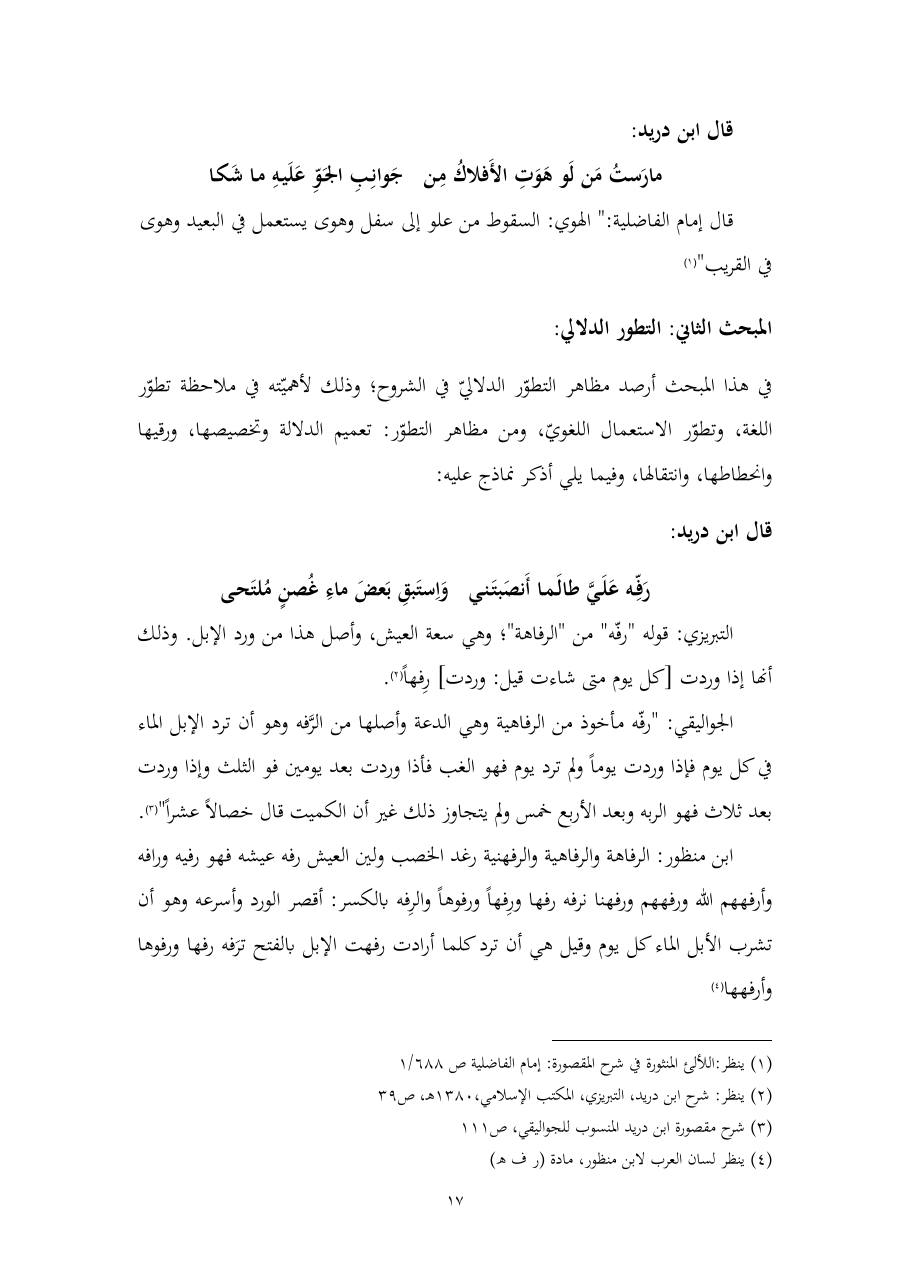 قال ابن دريد:
مارَستُ مَن لَو هَوَتِ الأَفلاكُ مِن جَوانِبِ الجَوِّ عَلَيهِ ما شَكا
قال إمام الفاضلية:" الهوي: السقوط من علو إلى سفل وهوى يستعمل في البعيد وهوى
في القريب"(١)
المبحث الثاني: التطور الدلالي:
في هذا المبحث أرصد مظاهر التطوّر الدلاليّ في الشروح؛ وذلك لأهميّته في ملاحظة تطوّر
اللغة، وتطوّر الاستعمال اللغويّ، ومن مظاهر التطوّر: تعميم الدلالة وتخصيصها، ورقيها
وانحطاطها، وانتقالها، وفيما يلي أذكر نماذج عليه:
قال ابن دريد:
رَفِّه عَلَيَّ طالَما أَنصَبتَني وَاِستَبقِ بَعضَ ماءِ غُصنٍ مُلتَحى
التبريزي: قوله "رفّه" من "الرفاهة"؛ وهي سعة العيش، وأصل هذا من ورد الإبل. وذلك
أنها إذا وردت [كل يوم متى شاءت قيل: وردت] رِفهاً(٢).
الجواليقي: "رفّه مأخوذ من الرفاهية وهي الدعة وأصلها من الرَّفه وهو أن ترد الإبل الماء
في كل يوم فإذا وردت يوماً ولم ترد يوم فهو الغب فأذا وردت بعد يومين فو الثلث وإذا وردت
بعد ثلاث فهو الربه وبعد الأربع خمس ولم يتجاوز ذلك غير أن الكميت قال خصالاً عشراً"(٣).
ابن منظور: الرفاهة والرفاهية والرفهنية رغد الخصب ولين العيش رفه عيشه فهو رفيه ورافه
وأرفههم الله ورفههم ورفهنا نرفه رفها ورِفهاً ورفوهاً والرِفه بالكسر: أقصر الورد وأسرعه وهو أن
تشرب الأبل الماء كل يوم وقيل هي أن ترد كلما أرادت رفهت الإبل بالفتح ترَفه رفها ورفوها
وأرفهها(٤)
(١) ينظر:اللألئ المنثورة في شرح المقصورة: إمام الفاضلية ص ١/٦٨٨
(٢) ينظر: شرح ابن دريد، التبريزي، المكتب الإسلامي،١٣٨٠هـ، ص٣٩
(٣) شرح مقصورة ابن دريد المنسوب للجواليقي، ص١١١
(٤) ينظر لسان العرب لابن منظور، مادة (ر ف هـ)
١٧